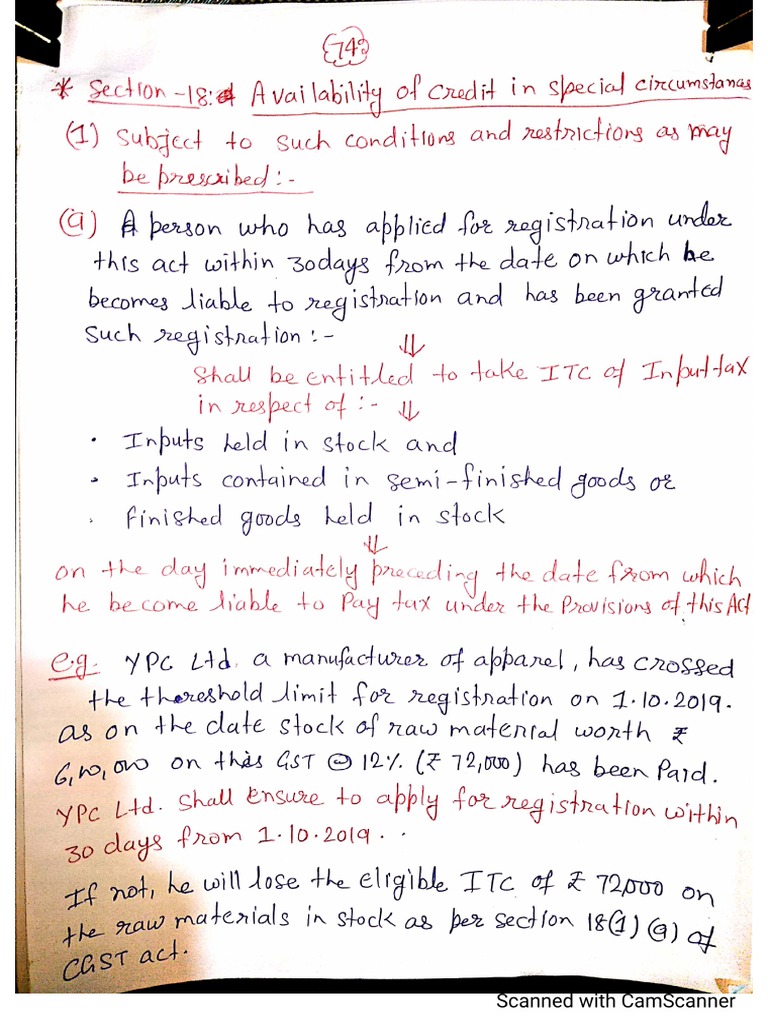 74
* Section-18: Availability of credit in special circumstances
(1) subject to such conditions and restrictions as may
be prescribed :-
(a) A person who has applied for registration under
this act within 30days from the date on which he
becomes liable to registration and has been granted
such registration :-
⇓
shall be entitled to take ITC of Input tax
in respect of :- ⇓
• Inputs held in stock and
• Inputs contained in semi-finished goods or
• finished goods held in stock
⇓
on the day immediately preceding the date from which
he become liable to Pay tax under the Provisions of this Act
e.g. YPC Ltd. a manufacturer of apparel, has crossed
the threshold limit for registration on 1.10.2019.
as on the date stock of raw material worth ₹
6,00,000 on this GST @ 12% (₹ 72,000) has been Paid.
YPC Ltd. shall ensure to apply for registration within
30 days from 1.10.2019..
If not, he will lose the eligible ITC of ₹ 72,000 on
the raw materials in stock as per section 18(1)(a) of
CGST act.
Scanned with CamScanner